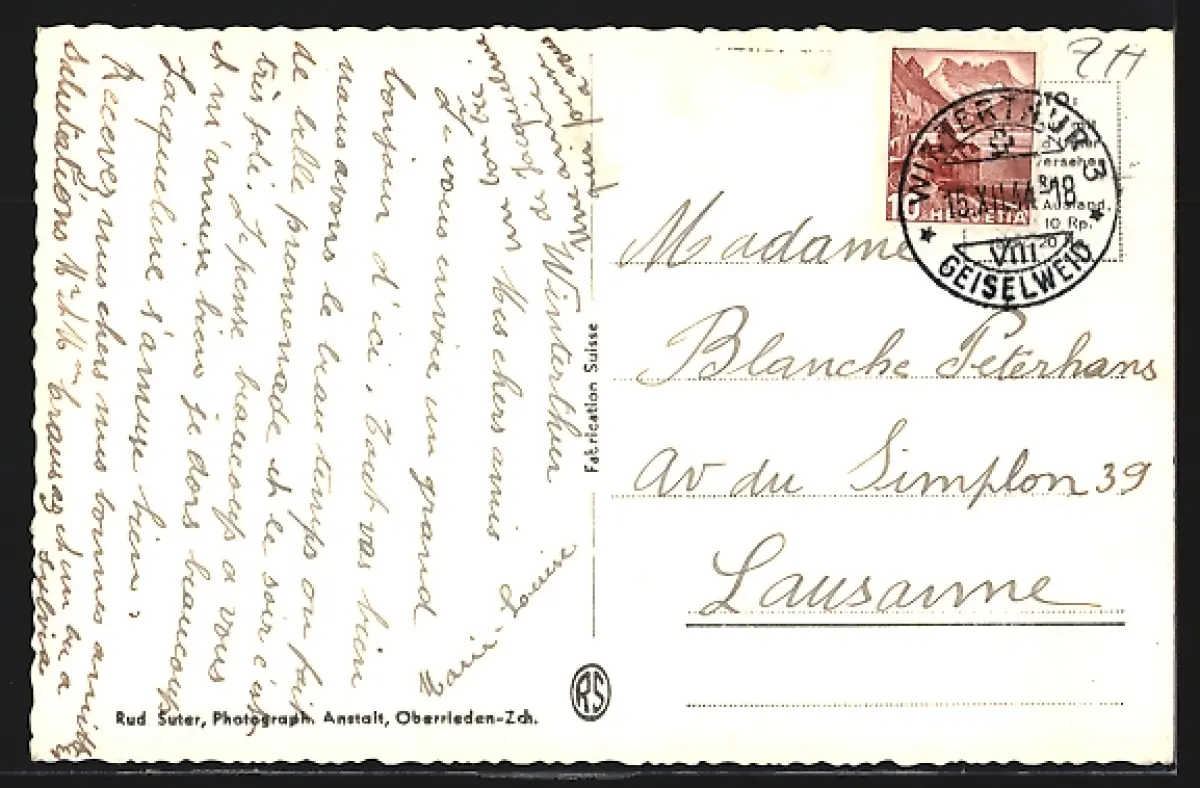 Winterthur
Mes chers amis
Je vous envoie un grand
bonjour d'ici, tout vas bien
nous avons le beau temps on fait
de belle promenade et le soir c'est
très joli. Je pense beaucoup a vous
et m'amuse bien je dors beaucoup
Jacqueline s'amuse bien.
Recevez mes chers mes bonnes amitiés
salutations Mr et Mme
Sylvia
Louise
Fabrication Suisse
RS
Rud Suter, Photograph. Anstalt, Oberrieden-Zch.
ZH
WINTERTHUR 3
15.XII.44-18
VIII
GEISELWEID
10 HELVETIA
Ausland.
10 Rp.
Madame
Blanche Peterhans
Av du Simplon 39
Lausanne